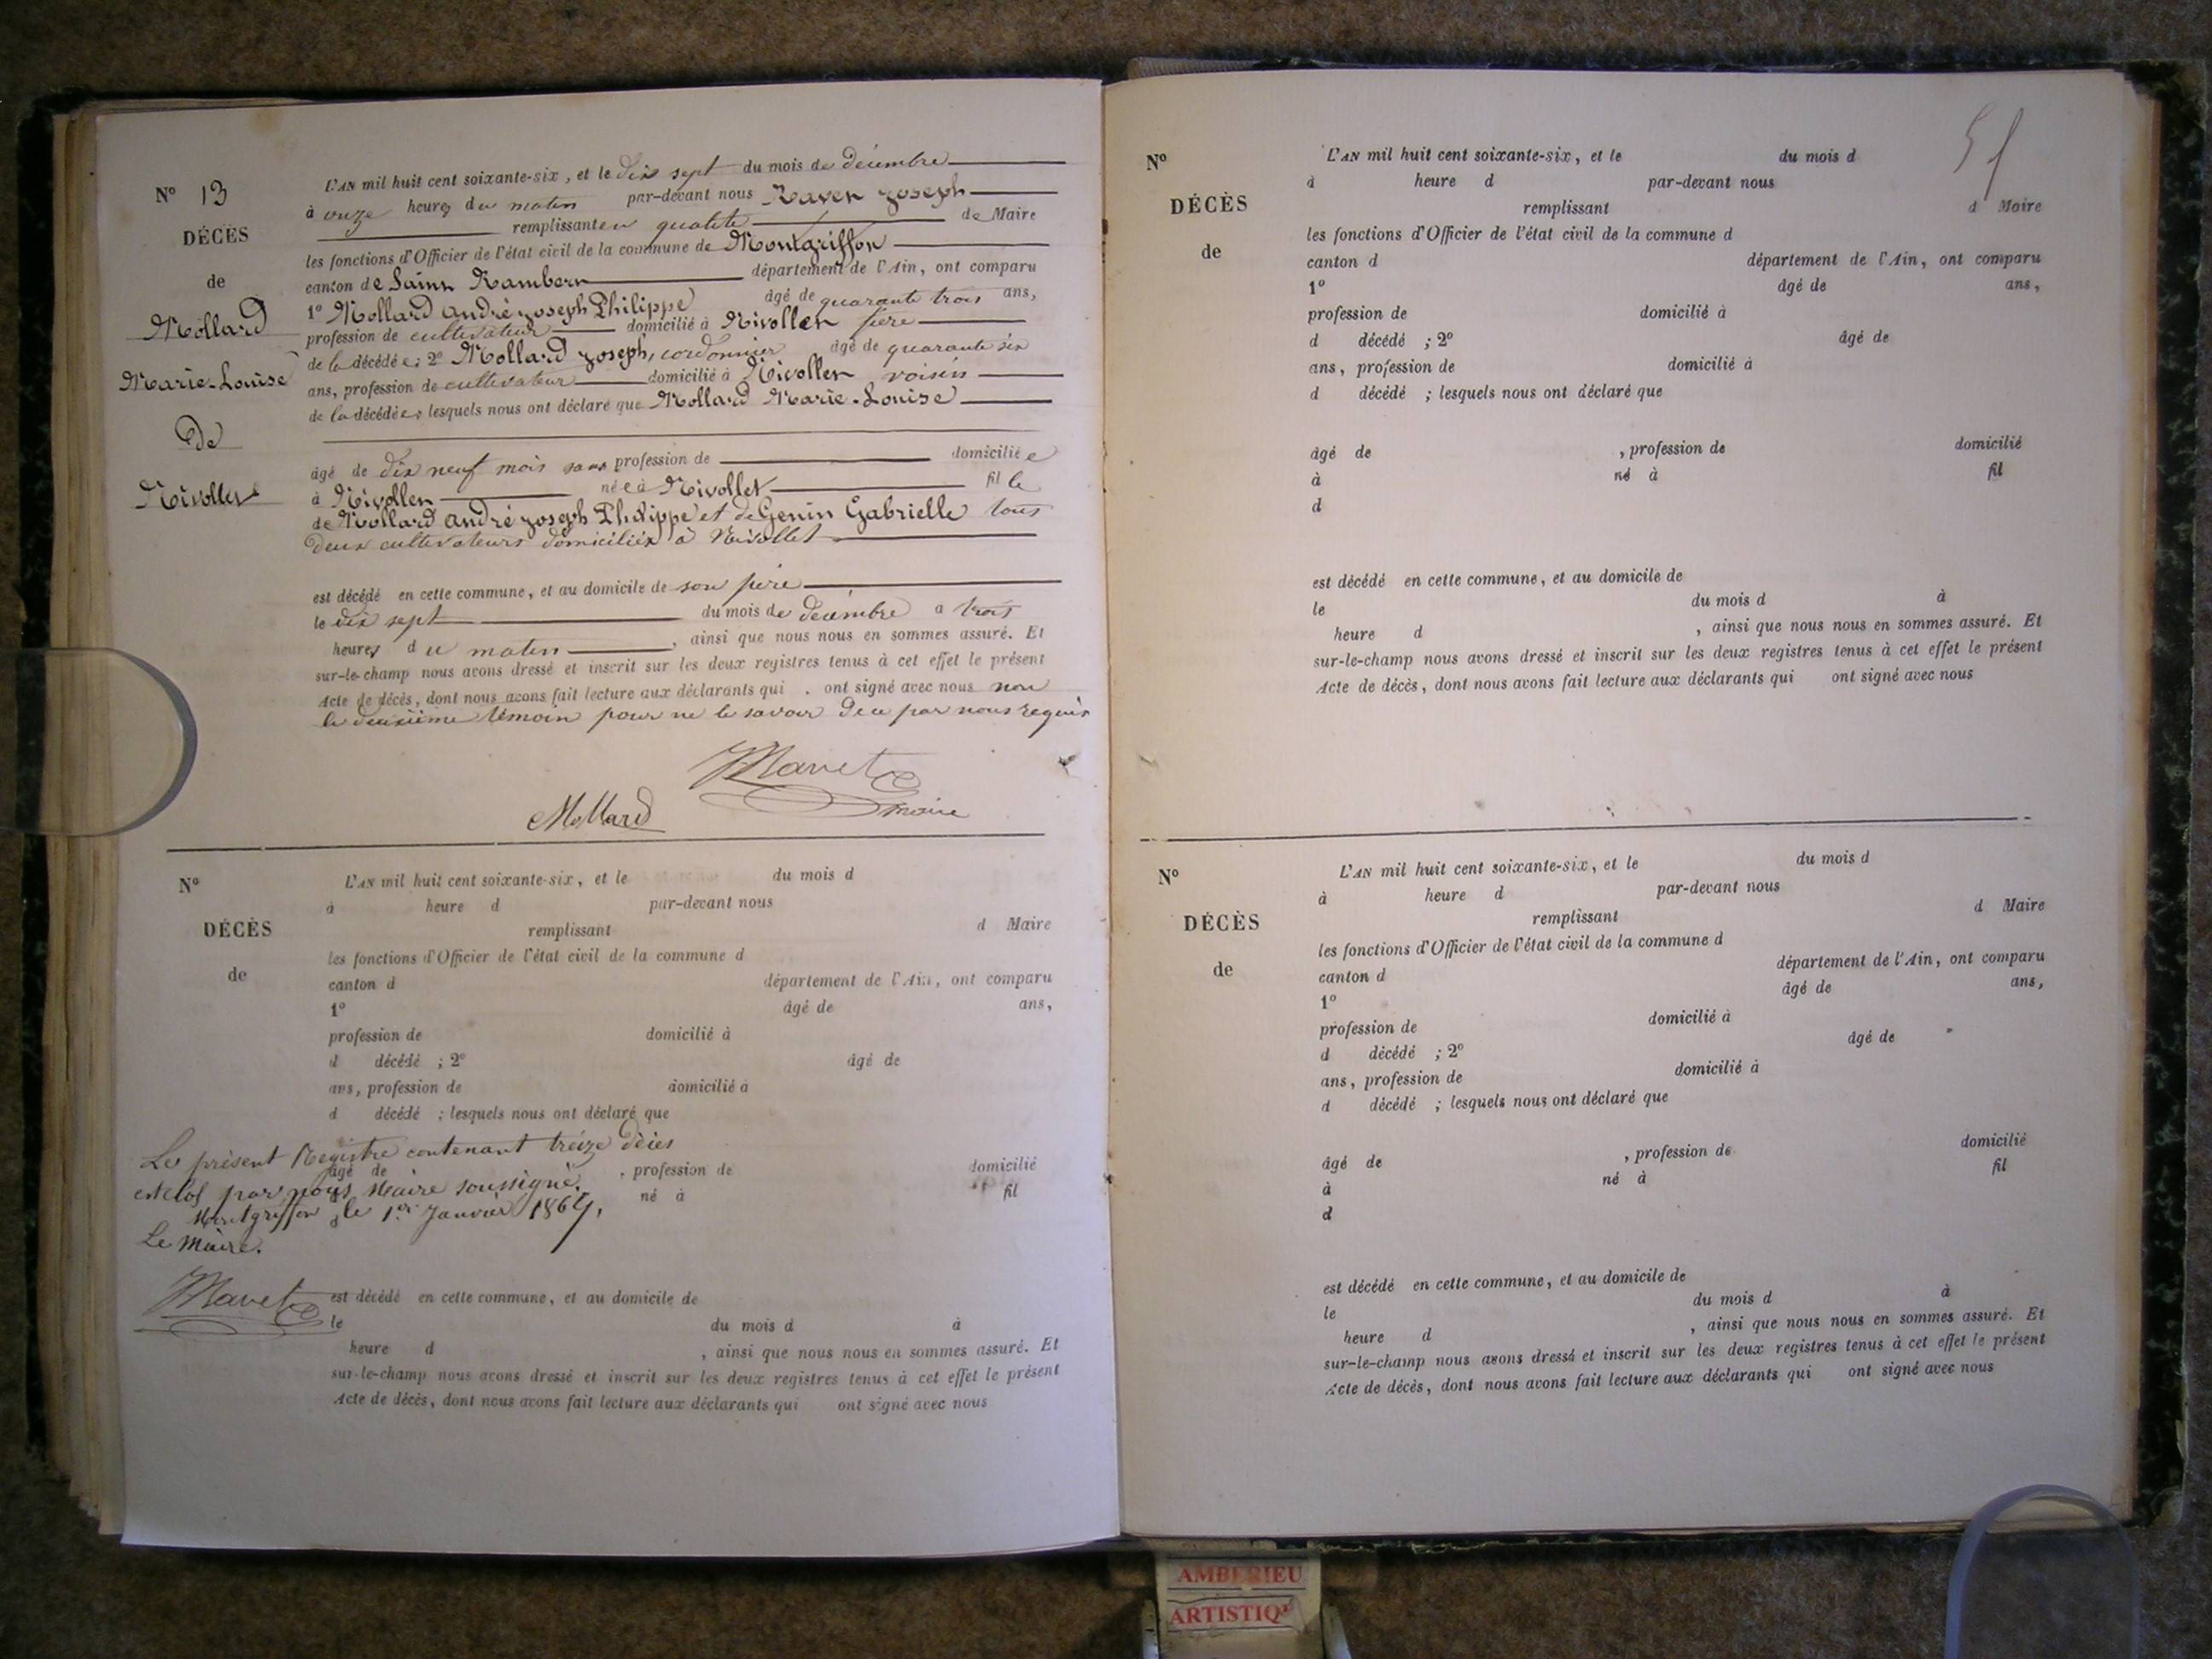 N° 13
DÉCÈS
de
Mollard
Marie-Louise
De
Nivollet
L'AN mil huit cent soixante-six, et le dix sept du mois de décembre
à onze heures du matin par-devant nous Joseph
remplissant en qualité de Maire
les fonctions d'Officier de l'état civil de la commune de Montgriffon
canton de Saint Rambert département de l'Ain, ont comparu
1° Mollard andré joseph Philippe âgé de quarante trois ans,
profession de cultivateur domicilié à Nivollet père
de la décédée; 2° Mollard joseph, cordonnier âgé de quarante six
ans, profession de cultivateur domicilié à Nivollet voisin
de la décédée; lesquels nous ont déclaré que Mollard Marie-Louise
âgé de dix neuf mois sans profession de domiciliée
à Nivollet née à Nivollet fille
de Mollard andré joseph Philippe et de Genin Gabrielle tous
deux cultivateurs domiciliés à Nivollet
est décédé en cette commune, et au domicile de son père
le dix sept du mois de décembre a trois
heures du matin, ainsi que nous nous en sommes assuré. Et
sur-le-champ nous avons dressé et inscrit sur les deux registres tenus à cet effet le présent
Acte de décès, dont nous avons fait lecture aux déclarants qui ont signé avec nous non
le deuxième témoin pour ne le savoir de ce par nous requis
Mollard
maire
N°
DÉCÈS
de
L'AN mil huit cent soixante-six, et le du mois d
à heure d par-devant nous
remplissant d Maire
les fonctions d'Officier de l'état civil de la commune d
canton d département de l'Ain, ont comparu
1° âgé de ans,
profession de domicilié à
d décédé ; 2° âgé de
ans, profession de domicilié à
d décédé ; lesquels nous ont déclaré que
Le présent Registre contenant treize décès
âgé de , profession de domicilié
est clos par nous Maire soussigné.
à né à fil
Montgriffon le 1er Janvier 1867,
d
Le Maire.
est décédé en cette commune, et au domicile de
le du mois d à
heure d , ainsi que nous nous en sommes assuré. Et
sur-le-champ nous avons dressé et inscrit sur les deux registres tenus à cet effet le présent
Acte de décès, dont nous avons fait lecture aux déclarants qui ont signé avec nous
51
N°
DÉCÈS
de
L'AN mil huit cent soixante-six, et le du mois d
à heure d par-devant nous
remplissant d Maire
les fonctions d'Officier de l'état civil de la commune d
canton d département de l'Ain, ont comparu
1° âgé de ans,
profession de domicilié à
d décédé ; 2° âgé de
ans, profession de domicilié à
d décédé ; lesquels nous ont déclaré que
âgé de , profession de domicilié
à né à fil
d
est décédé en cette commune, et au domicile de
le du mois d à
heure d , ainsi que nous nous en sommes assuré. Et
sur-le-champ nous avons dressé et inscrit sur les deux registres tenus à cet effet le présent
Acte de décès, dont nous avons fait lecture aux déclarants qui ont signé avec nous
N°
DÉCÈS
de
L'AN mil huit cent soixante-six, et le du mois d
à heure d par-devant nous
remplissant d Maire
les fonctions d'Officier de l'état civil de la commune d
canton d département de l'Ain, ont comparu
1° âgé de ans,
profession de domicilié à
d décédé ; 2° âgé de
ans, profession de domicilié à
d décédé ; lesquels nous ont déclaré que
âgé de , profession de domicilié
à né à fil
d
est décédé en cette commune, et au domicile de
le du mois d à
heure d , ainsi que nous nous en sommes assuré. Et
sur-le-champ nous avons dressé et inscrit sur les deux registres tenus à cet effet le présent
Acte de décès, dont nous avons fait lecture aux déclarants qui ont signé avec nous
AMBERIEU
ARTISTIQ